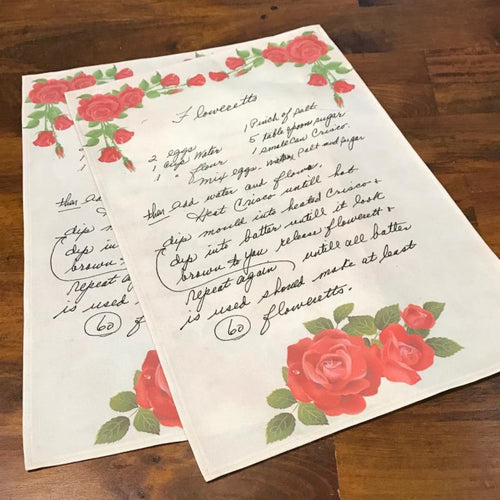 Floweretts
2 eggs 1 Pinch of salt
1 cup water 5 table spoons sugar
1 " flour 1 small can Crisco.
mix eggs. water, salt and sugar
then add water and flour.
Heat Crisco untill hot
dip mould into heated Crisco &
dip into batter untill it look
brown to you release flowerett &
repeat again untill all batter
is used should make at least
60 floweretts.
1
2
1
then add
dip
dip
brown
repeat
is used
60